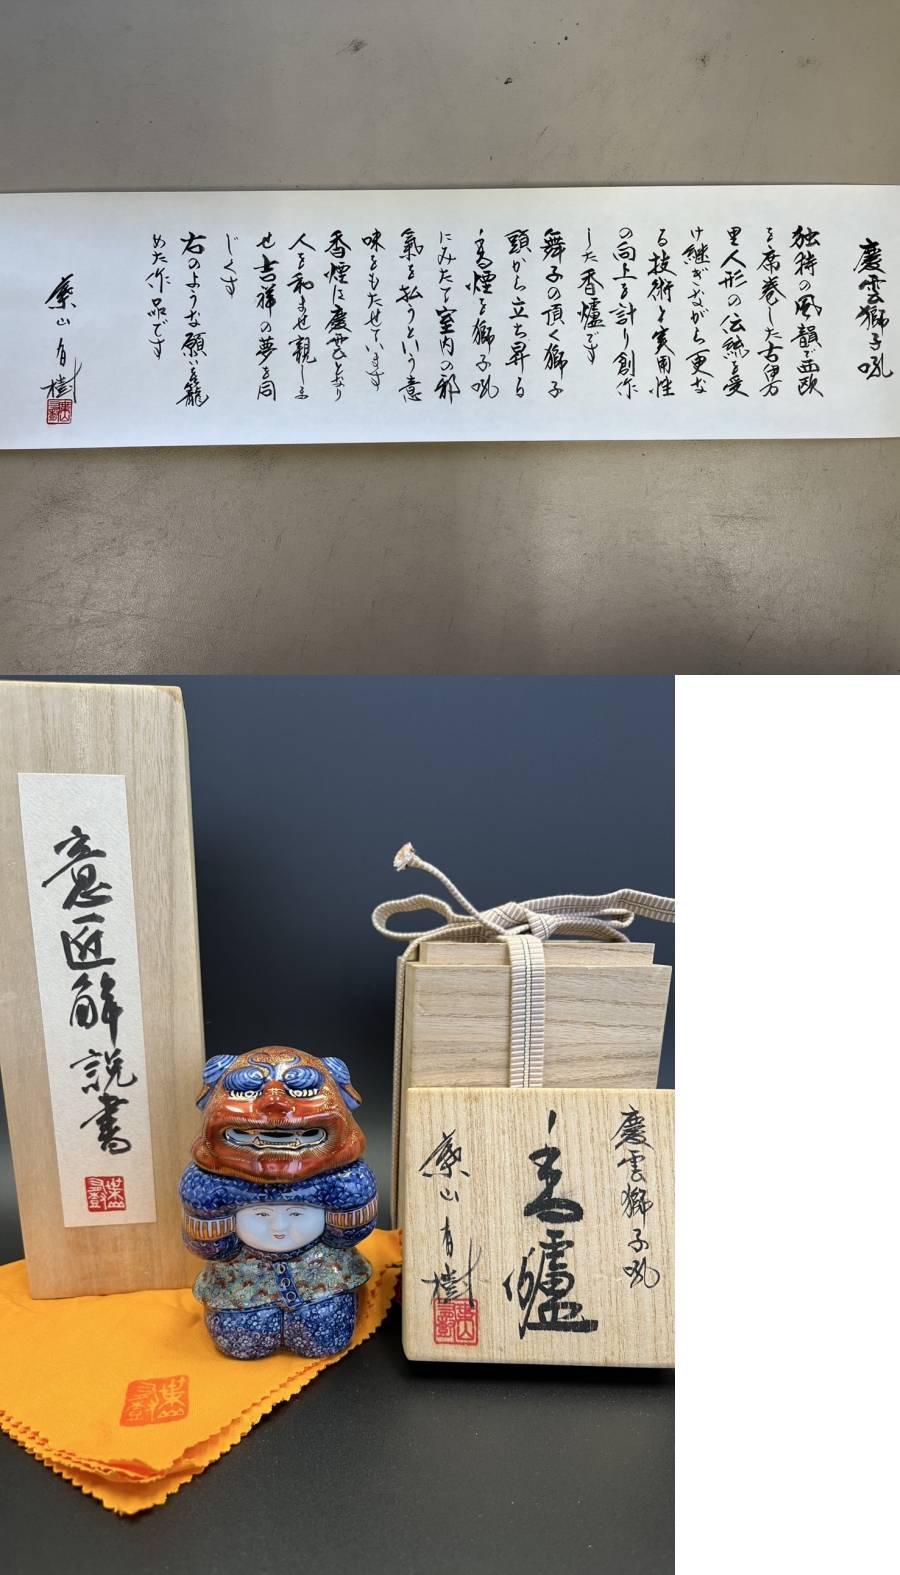 慶雲獅子吼
独特の風韻で西欧
を席巻した古伊万
里人形の伝統を受
け継ぎながら更な
る技術と実用性
の向上を計り創作
した香爐です
舞子の頂く獅子
頭から立ち昇る
香煙を獅子吼
にみたて室内の邪
氣を払うという意
味をもたせています
香煙は慶雲となり
人を和ませ親しま
せ吉祥の夢を同
じくす
右のような願いを籠
めた作品です
葉山有樹
意匠解説書
慶雲獅子吼
香爐
葉山有樹